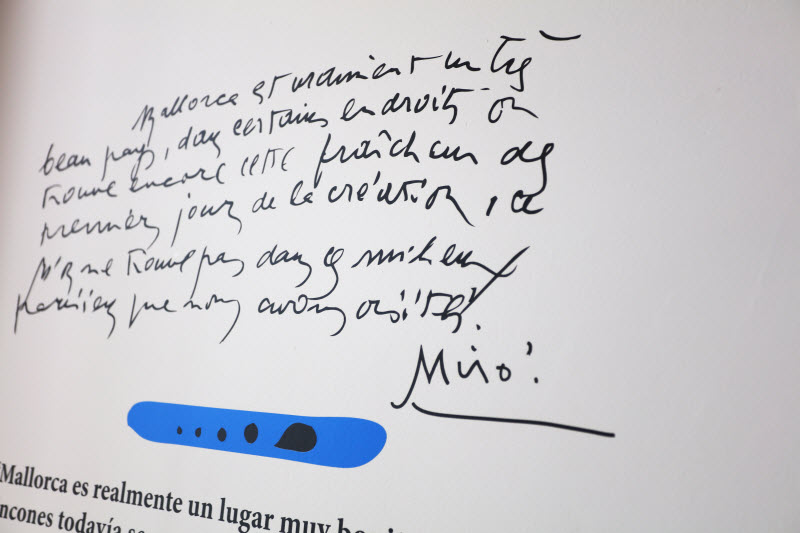 Mallorca est vraiment un très
beau pays, dans certains endroits on
trouve encore cette fraîcheur des
premiers jours de la création, ce
ne trouve pas dans ces milieux
parisiens que nous avons visités.
Miró.
"Mallorca es realmente un lugar muy
ncones todavía